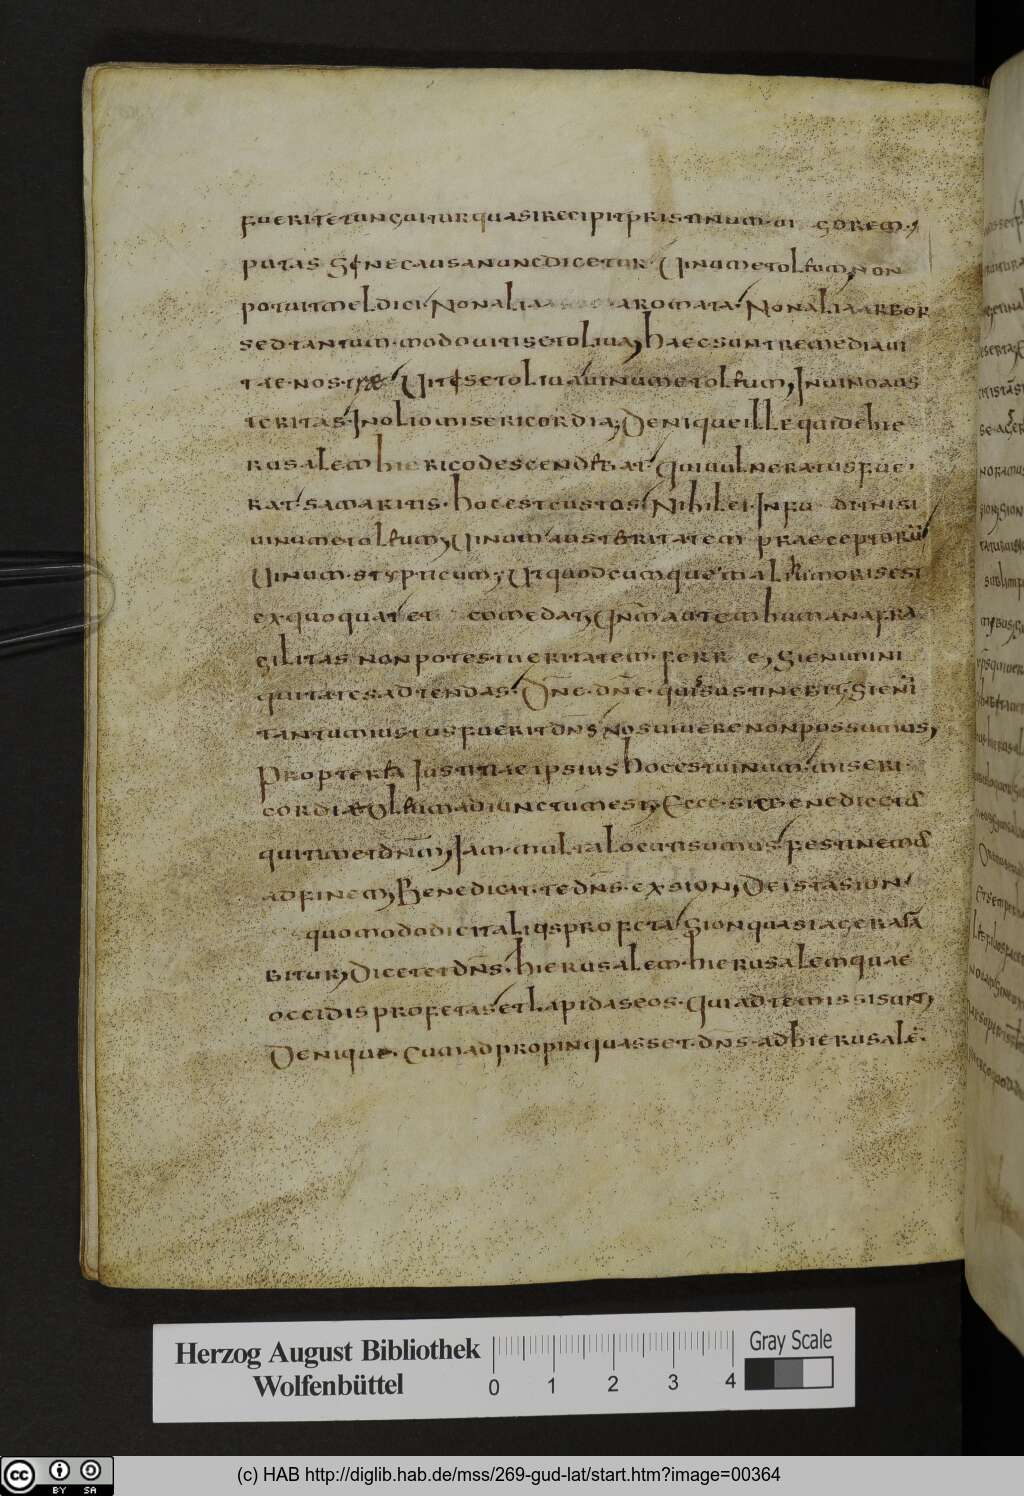 fuerit et unguitur quasi recipit pristinum uigorem;
putas sine causa nunc dicetur Uinum et oleum, non
potuit mel dici. Non alia aromata. Non alia arbor
sed tantummodo uitis et oliua; haec sunt remedia ui
tae nostrae Uitis et oliua uinum et oleum, In uino aus
teritas. In olio misericordia; Denique ille qui de hie
rusalem hiericho descendebat qui uulneratus fue
rat samaritis. hoc est custos Nihil ei Infudit nisi
uinum et oleum, Uinum austeritatem praeceptorū
Uinum stypticum, Ut quodcumque mali humoris est
ex quo quat et comedat, Unū autem humana fra
gilitas non potest ueritatem ferre, si enim ini
quitates adtendas. Dne dne quis sustinebit, si enī
tantum iustus fuerit dns nos uiuere non possumus,
Propterea Iustitiae ipsius hoc est uinum miseri
cordiae oleum adiunctum est, Ecce sic benedicetur
qui timet dnm, Iam multa locuti sumus festinemus
ad finem, Benedicat te dns ex sion, De ista sion
quomodo dicit alius profeta sion quasi ager ara
bitur, Dicet et dns. hierusalem hierusalem quae
occidis profetas et lapidas eos. qui ad te missi sunt,
Denique. Cum adpropinquasset dns ad hierusalē.
Herzog August Bibliothek
Wolfenbüttel
0 1 2 3 4
Gray Scale
cc BY SA
(c) HAB http://diglib.hab.de/mss/269-gud-lat/start.htm?image=00364